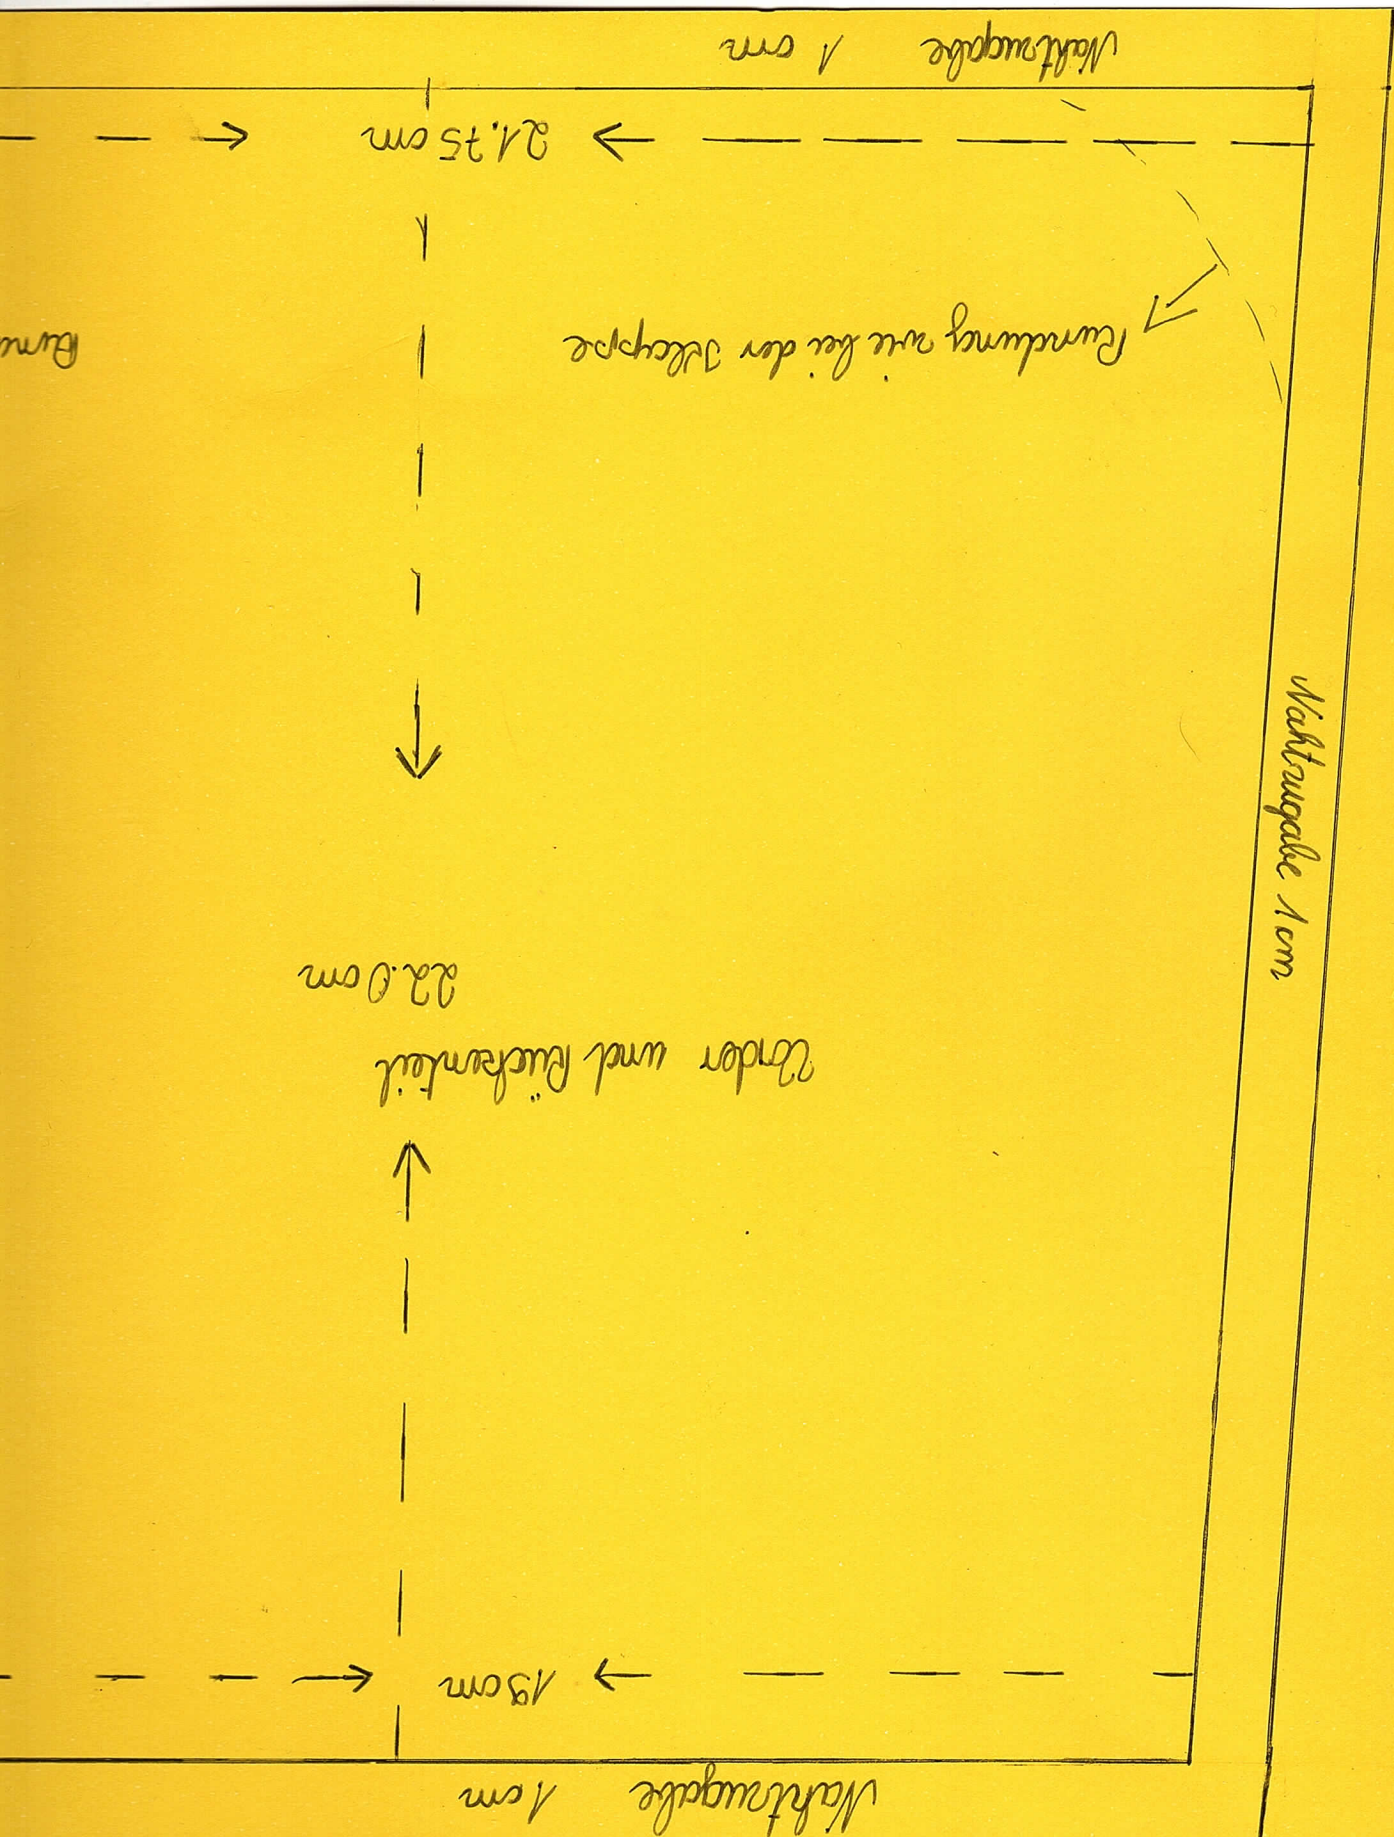 Nahtzugabe 1cm
19cm
Vorder und Rückenteil
22.0cm
Nahtzugabe 1cm
Rundung wie bei der Klappe
Rund
21.75cm
Nahtzugabe 1 cm